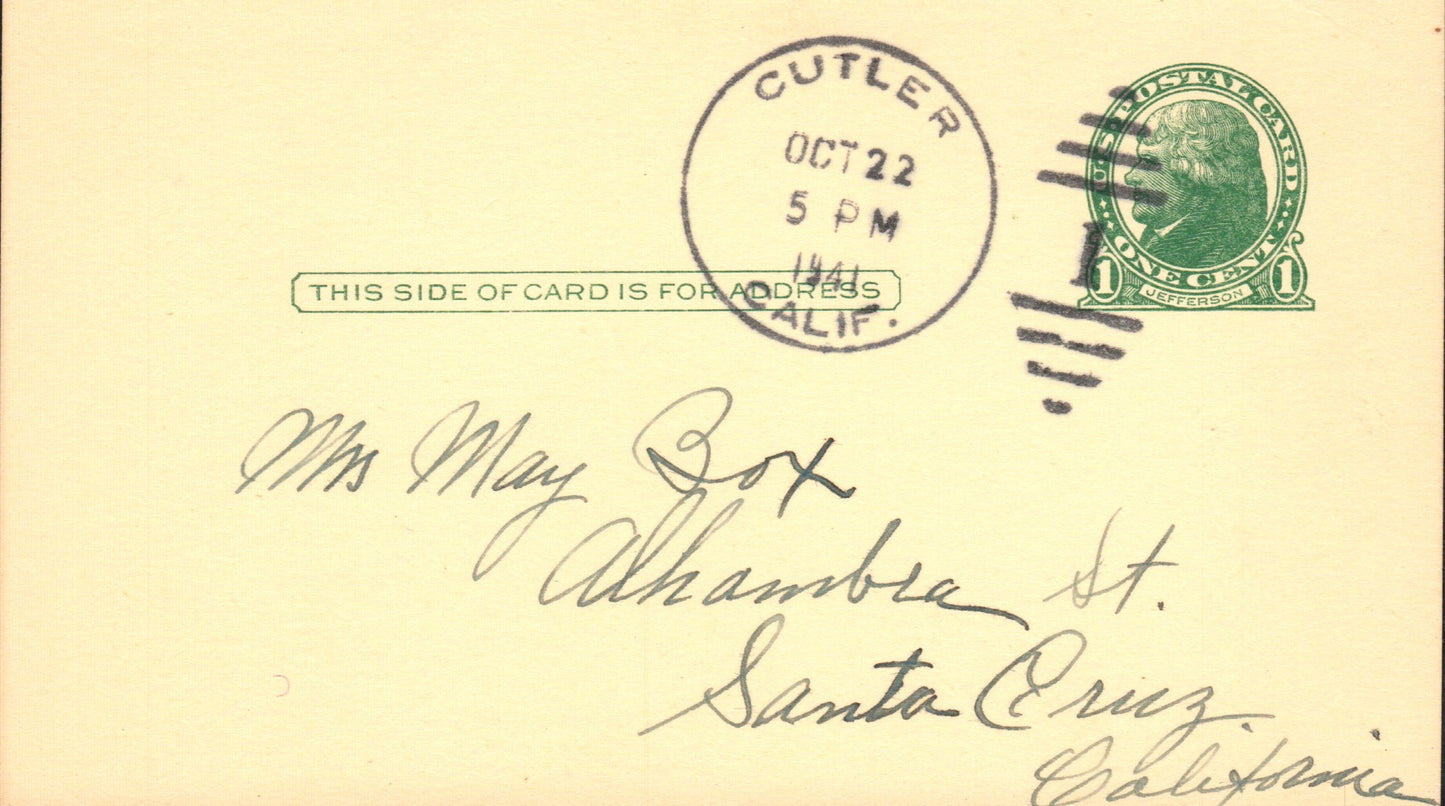 CUTLER
OCT 22
5 PM
1941
CALIF.
U·S·POSTAL CARD
1
ONE CENT
1 JEFFERSON 1
THIS SIDE OF CARD IS FOR ADDRESS
Mrs May Box
Alhambra St.
Santa Cruz
California